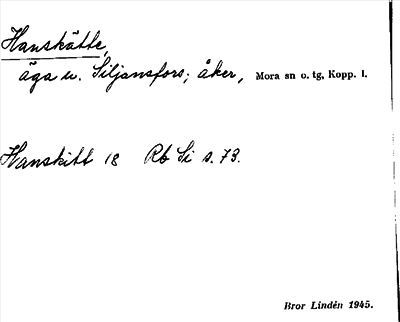 Hanskätte,
äga u. Siljansfors; åker, Mora sn o. tg, Kopp. l.
Hanskitt 18 Rb Si s. 73.
Bror Lindén 1945.